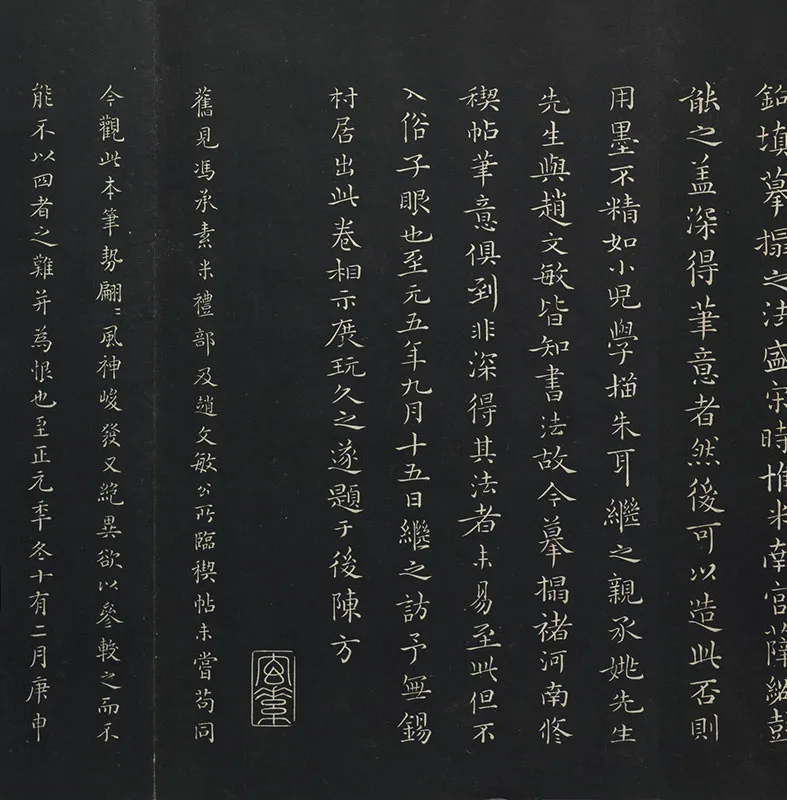 鉛填摹搨之法盛宋時惟米南宮薛紹彭
能之盖深得筆意者然後可以造此否則
用墨不精如小兒學描朱耳繼之親承姚先生
先生與趙文敏皆知書法故今摹搨褚河南修
禊帖筆意俱到非深得其法者未易至此但不
入俗子眼也至元五年九月十五日繼之訪予無錫
村居出此卷相示展玩久之遂題于後陳方
舊見馮承素米禮部及趙文敏公所臨禊帖未嘗苟同
今觀此本筆勢翩〻風神峻發又絕異欲以參較之而不
能不以四者之難并為恨也至正元季冬十有二月庚申